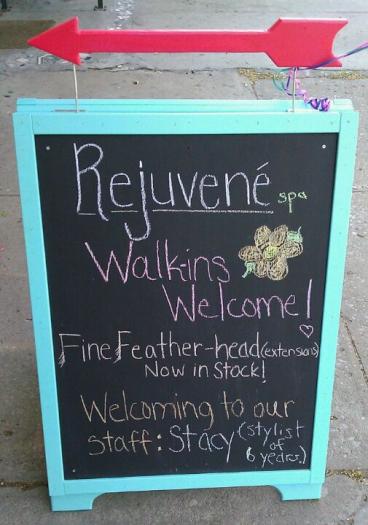 Rejuvené spa
Walk-ins
Welcome!
Fine Feather-head (extensions)
Now in Stock!
Welcoming to our
staff: Stacy (stylist
of
6 years.)